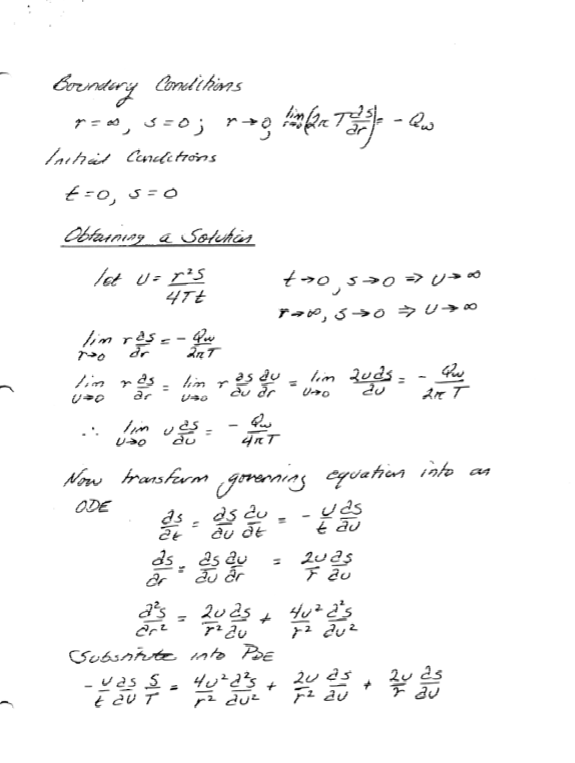 Boundary Conditions
r = ∞, s = 0; r → 0, lim r→0 (2π T r ∂s/∂r) = - Qw
Initial Conditions
t = 0, s = 0
Obtaining a Solution
let U = r²S/4Tt    t → 0, s → 0 ⇒ U → ∞
r → ∞, s → 0 ⇒ U → ∞
lim r→0 r ∂s/∂r = - Qw/2πT
lim U→0 r ∂s/∂r = lim U→0 r ∂s/∂u ∂u/∂r = lim U→0 2u∂s/∂u = - Qw/2πT
∴ lim U→0 u ∂s/∂u = - Qw/4πT
Now transform governing equation into an
ODE
∂s/∂t = ∂s/∂u ∂u/∂t = - u/t ∂s/∂u
∂s/∂r = ∂s/∂u ∂u/∂r = 2u/r ∂s/∂u
∂²s/∂r² = 2u/r² ∂s/∂u + 4u²/r² ∂²s/∂u²
Substitute into PDE
- u/t ∂s/∂u S/T = 4u²/r² ∂²s/∂u² + 2u/r² ∂s/∂u + 2u/r ∂s/∂u